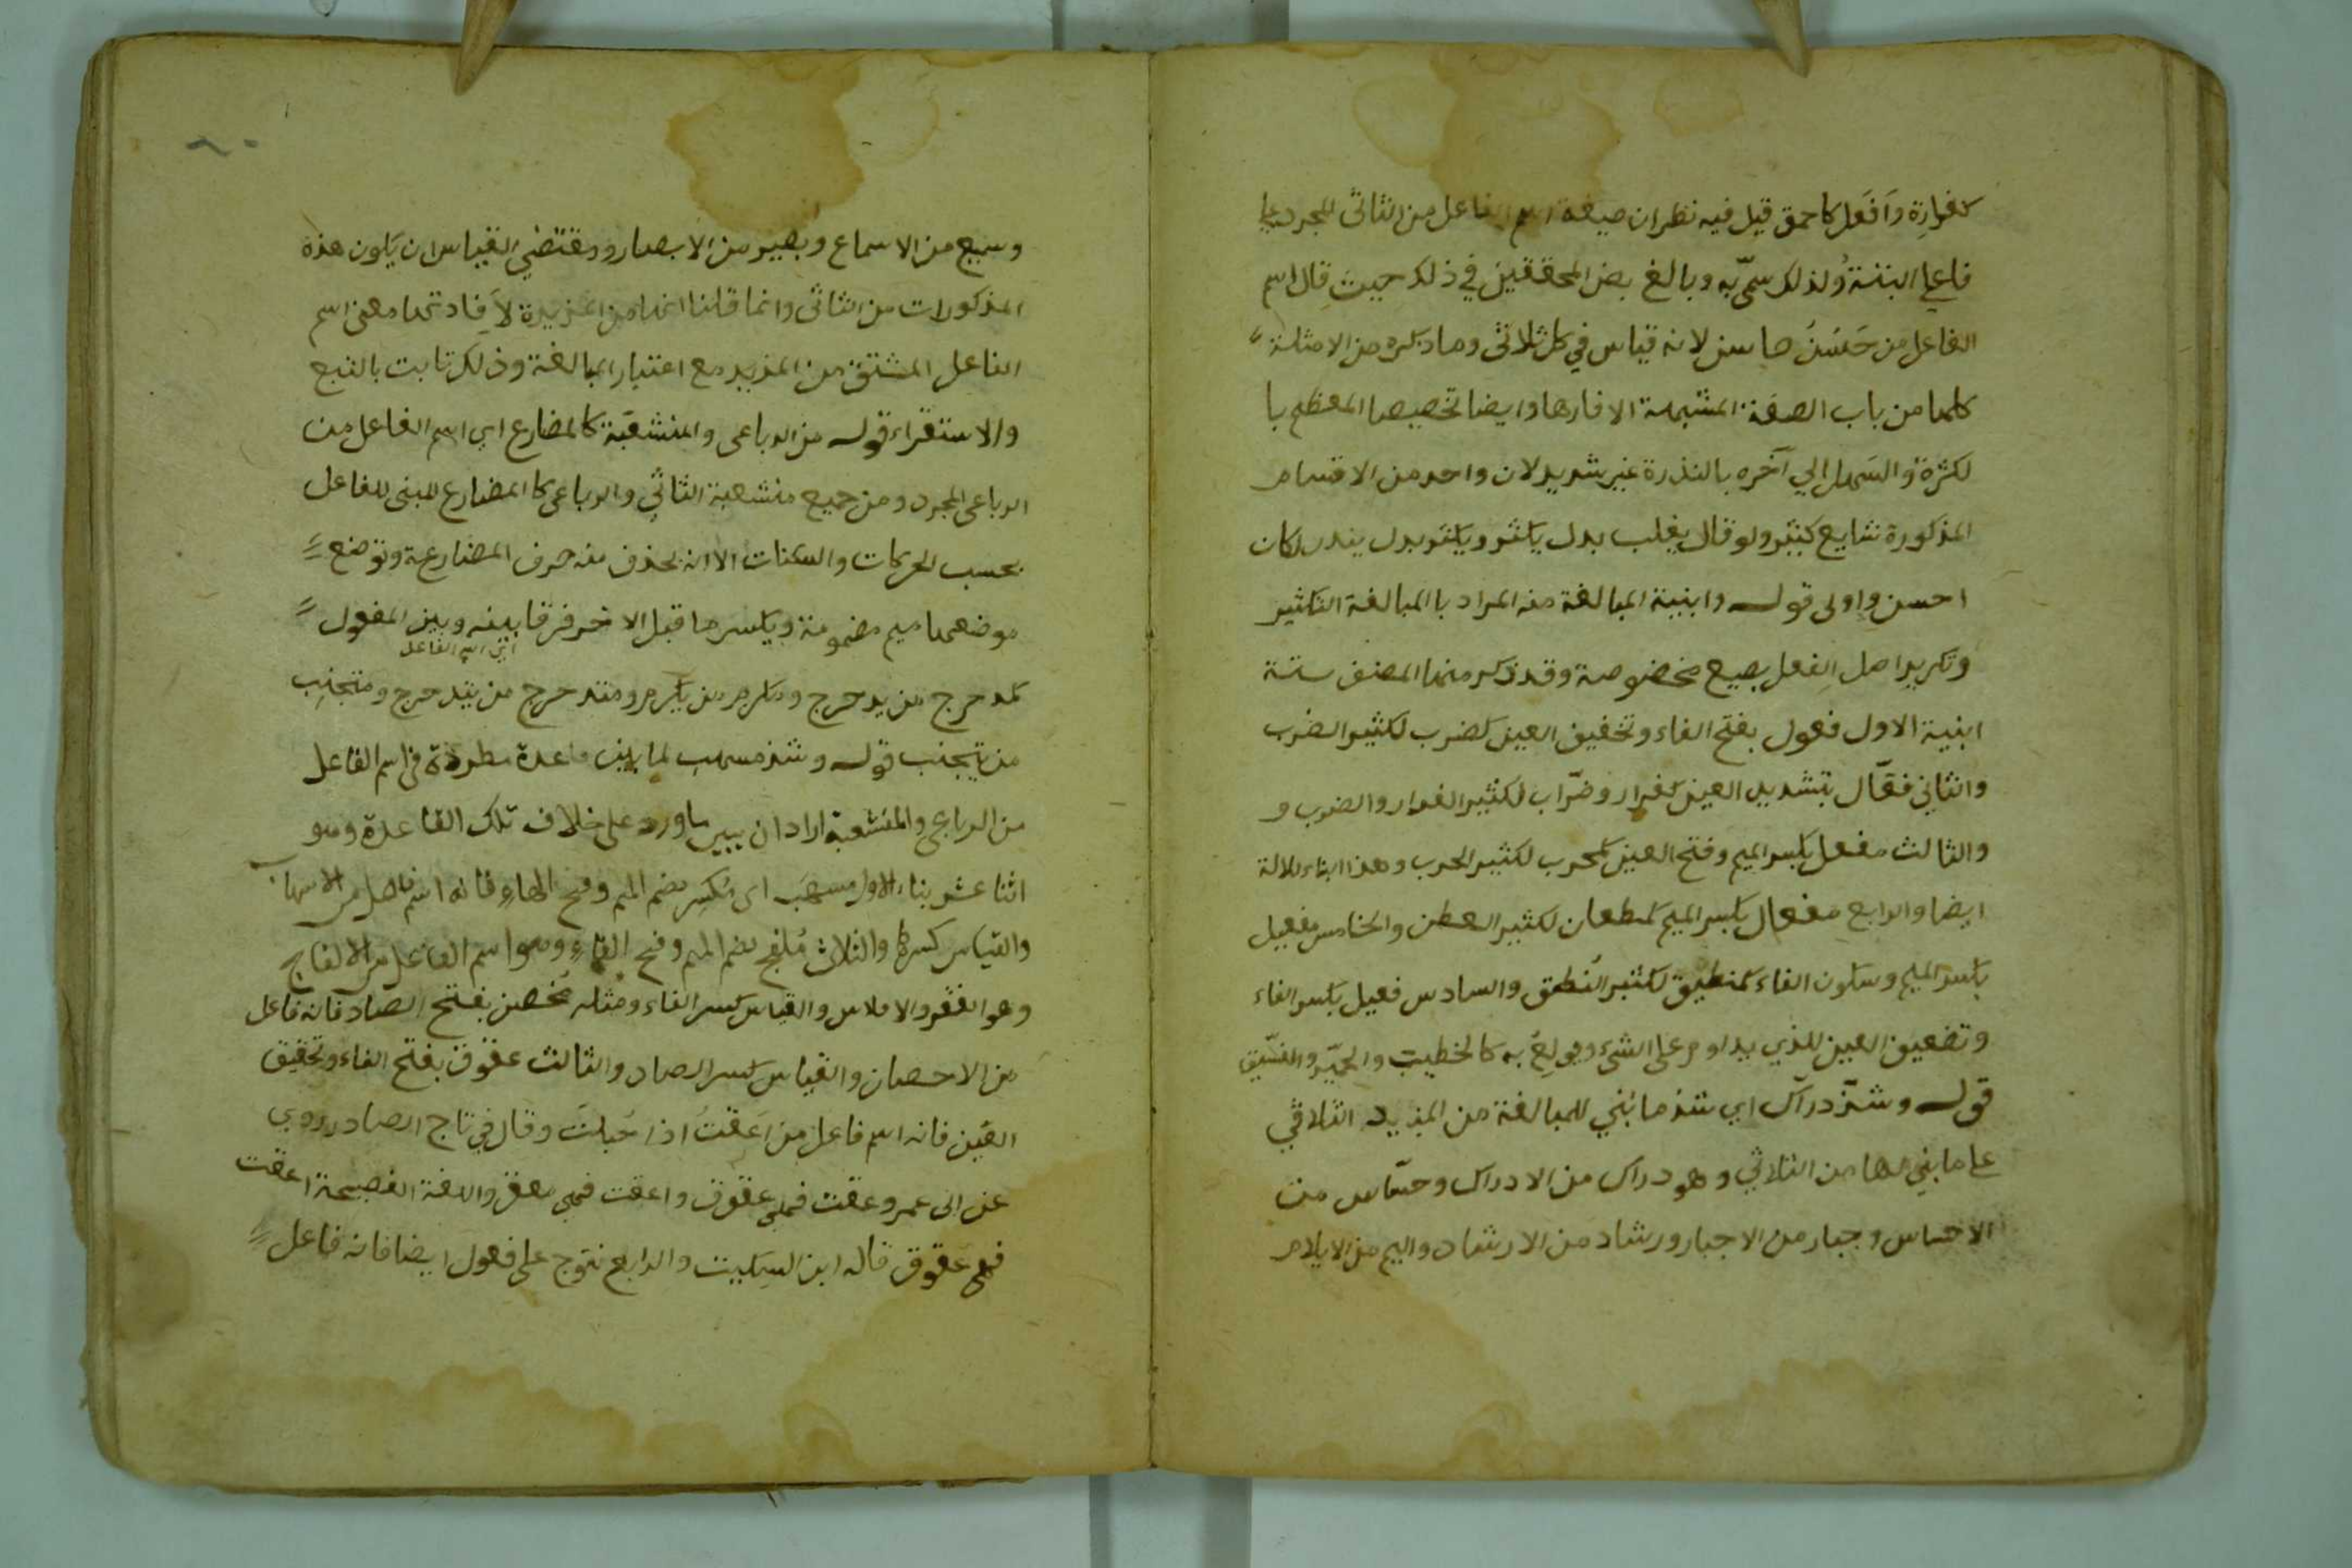 كفرارة وأفعل كاحمق قيل فيه نظر ان صيغة اسم الفاعل من الثلاثى المجرد على
فاعل البتة ولذلك سمّى به وبالغ بعض المحققين في ذلك حيث قال اسم
الفاعل من حَسُنَ حاسن لانه قياس في كل ثلاثى وما ذكره من الامثلة
كلها من باب الصفة المشبهة الا فارها وايضا تخصيصا المعظم با
لكثرة والسَهل الي آخره بالندرة غير شديد لان واحد من الاقسام
المذكورة شايع كثير ولو قال يغلب بدل يكثر ويكثر بدل يندر لكان
احسن واولى قوله وابنية المبالغة منه المراد با المبالغة التكثير
وتكرير اصل الفعل بصيغ مخصوصة وقد ذكر منها المصنف ستة
ابنية الاول فعول بفتح الفاء وتخفيف العين كضرب لكثير الضرب
والثاني فعّال بتشديد العين كفرار وضرّاب لكثير الفرار والضرب و
والثالث مفعل بكسر الميم وفتح العين كمحرب لكثير الحرب وهذا البناء للالة
ايضا والرابع مفعال بكسر الميم كمطعان لكثير الطعن والخامس مفعيل
بكسر الميم وسكون الفاء كمنطيق لكثير النُطق والسادس فعيل بكسر الفاء
وتضعيف العين للذي يداوم على الشئ ويولع به كالخطيب والخمّير والفسّيق
قوله وشذّ درآك اي شذ ما بُني للمبالغة من المزيد الثلاثي
على ما بني لها من الثلاثي وهو دراك من الادراك وحسّاس من
الاحساس وجبار من الاجبار ورشاد من الارشاد واليم من الايلام
وسميع من الاسماع وبصير من الابصار ومقتضي القياس ان يكون هذه
المذكورات من الثلاثى وانما قلنا انها من المزيدة لاَفادتها معنى اسم
الفاعل المشتق من المزيد مع اعتبار المبالغة وذلك ثابت بالتبع
والاستقراء قوله من الرباعى والمنشعبة كالمضارع اي اسم الفاعل من
الرباعى المجرد ومن جميع منشعبة الثلاثي والرباعى كا المضارع المبنى للفاعل
بحسب الحركات والسكنات الا انه بحذف منه حرف المضارعة وتوضع
موضعها ميم مضمومة ويكسر ما قبل الاخر فرقا بينه وبين المفعول
اي اسم الفاعل
كمدحرج من يدحرج ومكرم من يكرم ومتدحرج من يتدحرج ومتجنب
من يتجنب قوله وشذ مسهب لما بين قاعدة مطردة في اسم الفاعل
من الرباعي والمنشعبة اراد ان يبين ما ورد على خلاف تلك القاعدة وهو
اثنا عشر بناء الاول مسهَب اى مُكثِر بضم الميم وفتح الهاء فانه اسم فاعل من الاسهاب
والقياس كسرها والثلاث مُلفج بضم الميم وفتح الفاء وهو اسم الفاعل من الالفاج
وهو الفقر والافلاس والقياس كسر الفاء ومثله مُحصن بفتح الصاد فانه فاعل
من الاحصان والقياس كسر الصاد والثالث عقوق بفتح الفاء وتحقيق
العَين فانه اسم فاعل من اَعَقت اذا حَبلتَ وقال في تاج المصادر روي
عن ابى عمرو عقت فهى عقوق واعقت فهي معق واللغة الفصيحة اعقت
فهي عقوق قاله ابن السكيت والرابع نتوج على فعول ايضا فانه فاعل